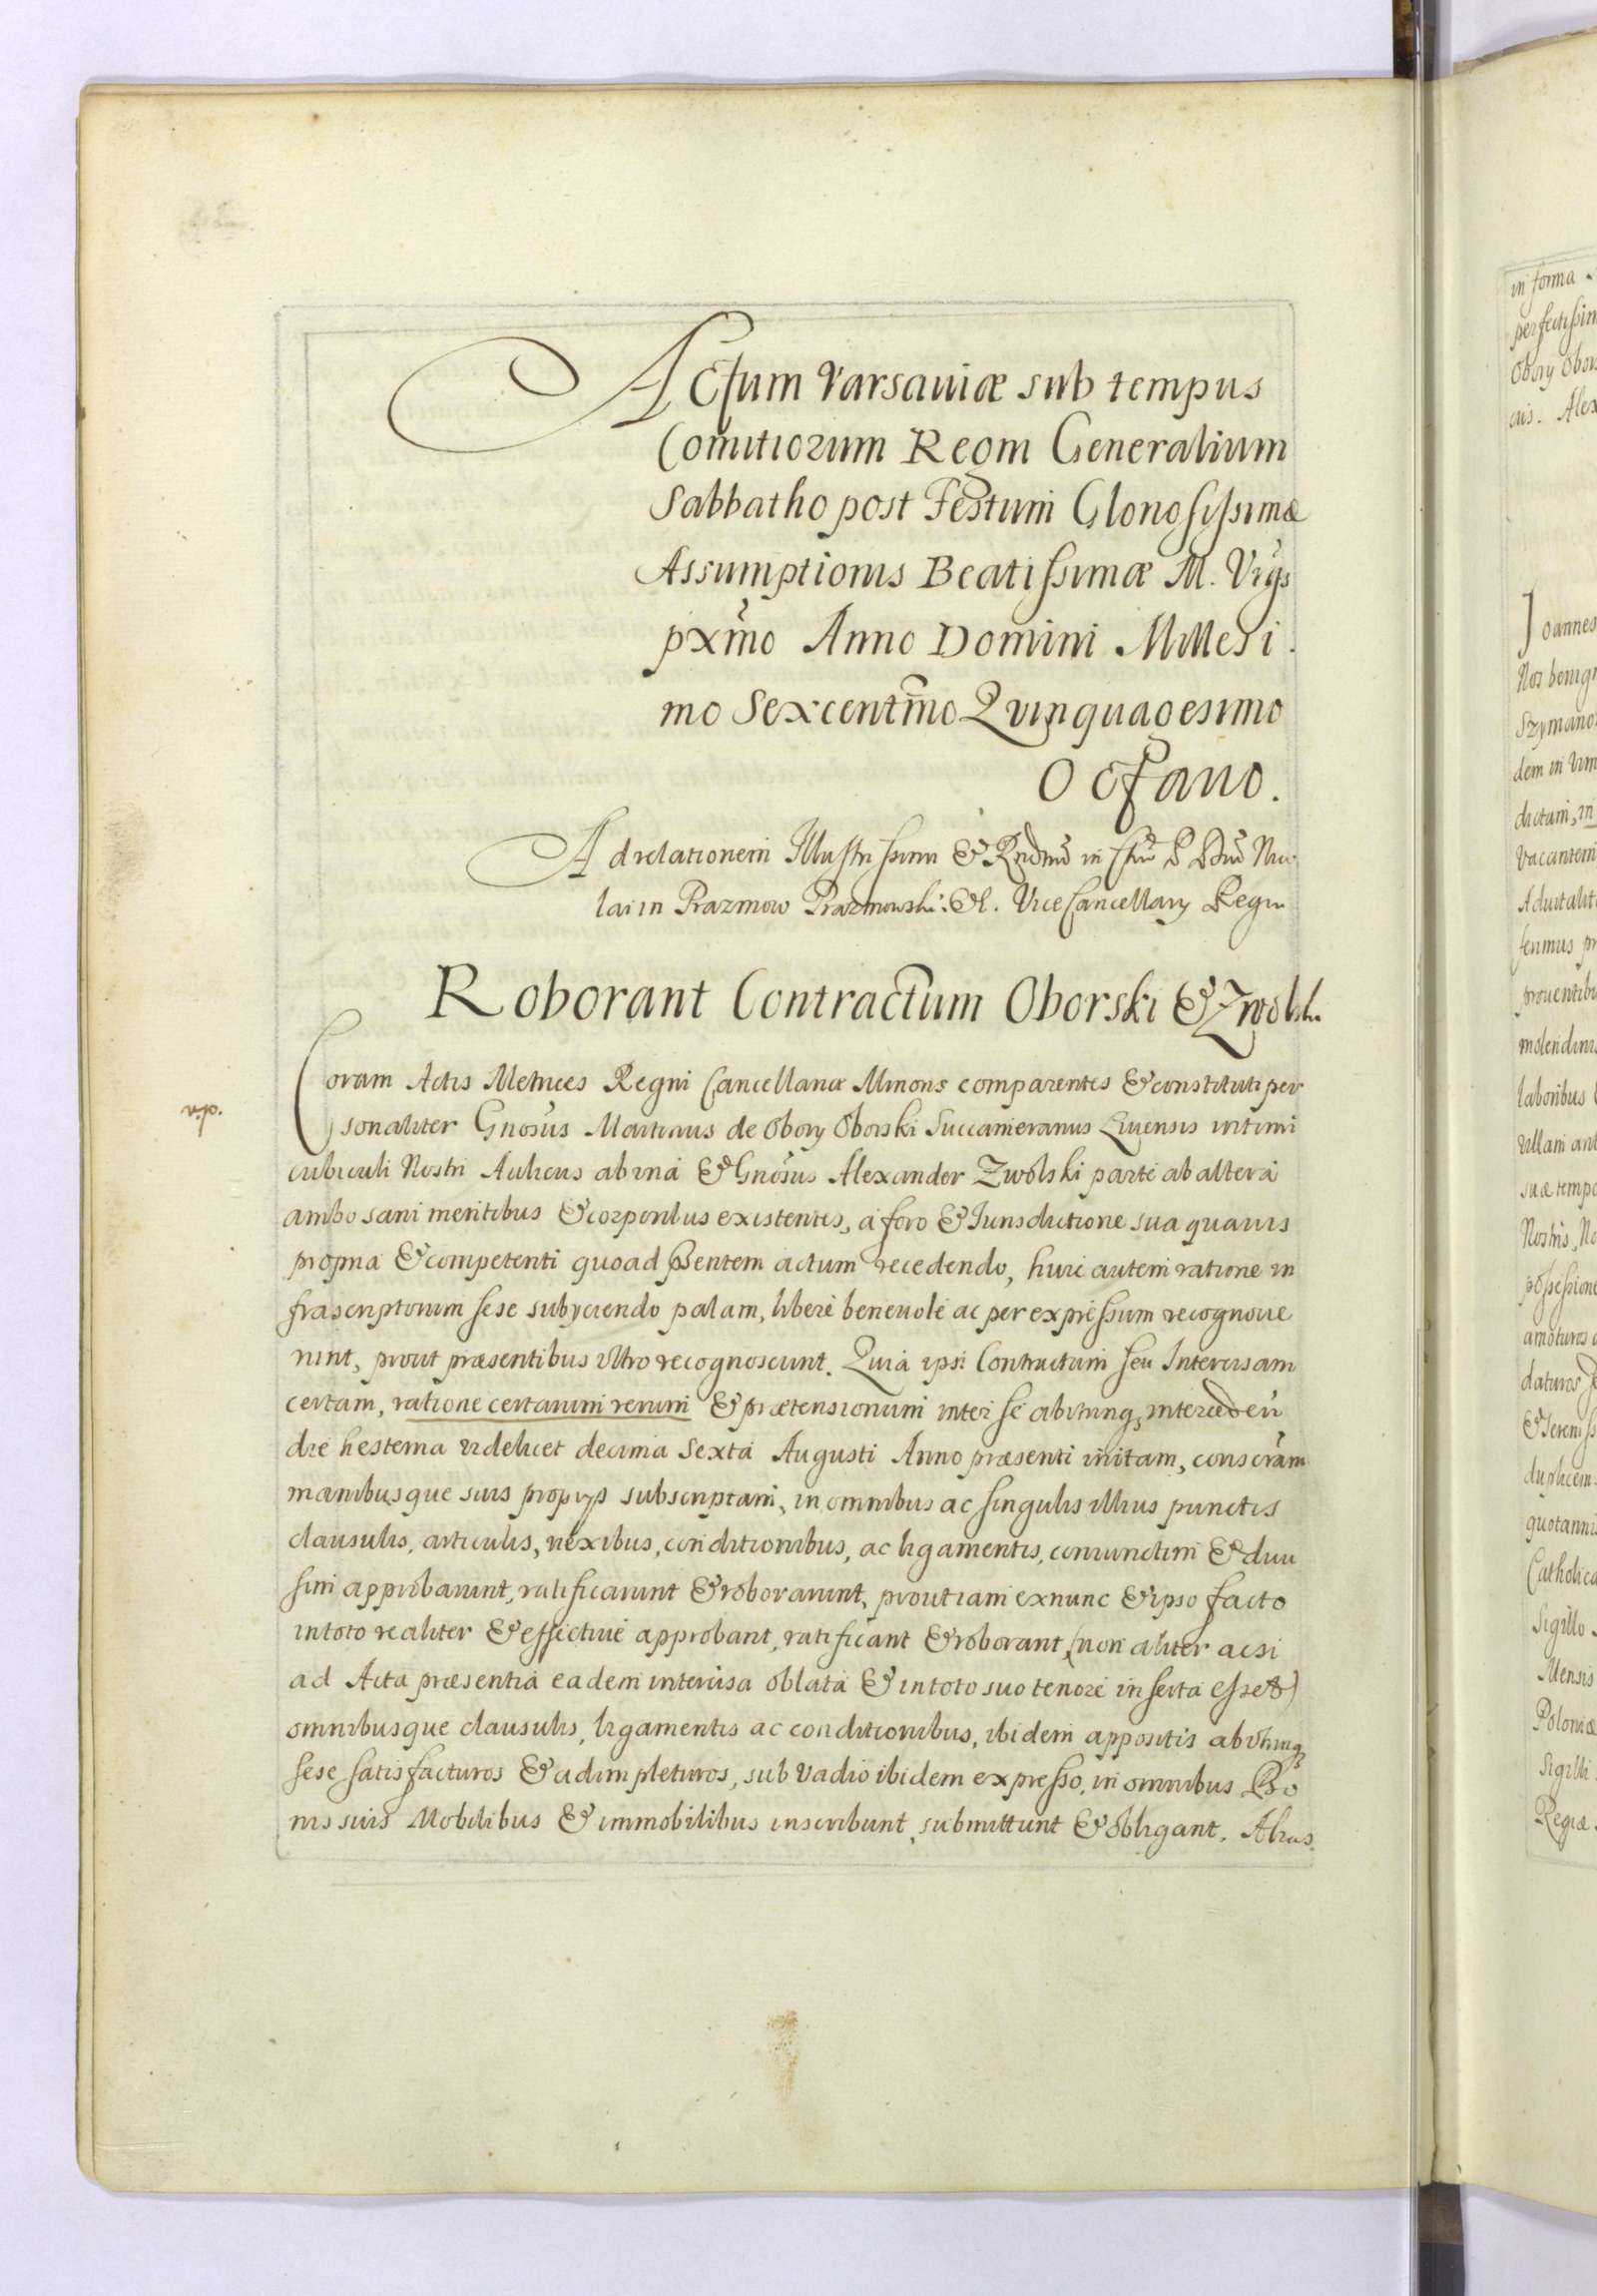 Actum Varsaviæ sub tempus
Comitiorum Regni Generalium
Sabbatho post Festum Gloriosissimæ
Assumptionis Beatissimæ M. Virgs
pxm̃o Anno Domini Millesi
mo Sexcentm̃o Quinquagesimo
Octavo.
Ad relationem Illustrissimi & Rndmi in D Nico
lai in Prazmow Prazmowski. Vice Cancellarij Regni
Roborant Contractum Oborski & Zwolski
Coram Actis Metrices Regni Cancellariæ Minoris comparentes & constituti per
v.p.
sonaliter Gnosus Martinus de Obory Oborski Succamerarius Livensis intimi
cubiculi Nostri Aulicus ab una & Gnosus Alexander Zwolski parte ab altera
ambo sani mentibus & corporibus existentes, a foro & Iurisdictione sua quavis
propria & competenti quoad pñsentem actum recedendo, huic autem ratione in
frascriptorum sese subijciendo palam, libere benevole ac per expressum recognove
runt, prout præsentibus ultro recognoscunt. Quia ipsi Contractum seu Intercisam
certam, ratione certarum rerum & prætensionum inter se ab utrinq intercedeñ
die hesterna videlicet decima Sexta Augusti Anno præsenti initam, conscriptam
manibusque suis proprijs subscriptam, in omnibus ac singulis illius punctis
clausulis, articulis, nexibus, conditionibus, ac ligamentis, coniunctim & divi
sim approbarunt, ratificarunt & roborarunt, prout iam exnunc & ipso facto
in toto realiter & effective approbant, ratificant & roborant, (non aliter acsi
ad Acta præsentia eadem intercisa oblata & in toto suo tenore inserta esset)
omnibusque clausulis, ligamentis ac conditionibus, ibidem appositis ab utrinq
sese satisfacturos & adimpleturos, sub vadio ibidem expresso, in omnibus Bo
nis suis Mobilibus & immobilibus inscribunt, submittunt & obligant. Alias
in forma
perfectissim
Obory Obor
cis. Alex
Joannes
Nos benign
Szymano
dem in vim
dictam, in
vacantem
Advitalit
ferimus pr
proventibu
molendinis
laboribus
villam ant
suæ tempo
Nostris, No
possessione
amoturos
daturos
& Sereniss
duplicem
quotannis
Catholica
Sigillo
Mensis
Poloniæ
Sigilli
Regiæ